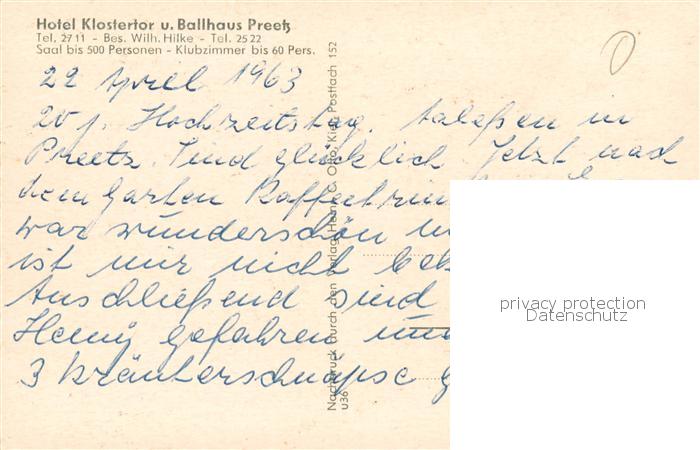 Hotel Klostertor u. Ballhaus Preetz
Tel. 27 11 - Bes. Wilh. Hilke - Tel. 25 22
Saal bis 500 Personen - Klubzimmer bis 60 Pers.
22 April 1963
20 j. Hochzeitstag. in
Preetz. Sind glücklich Jetzt nach
dem Garten
war wunderschön
ist mir nicht
Anschließend sind
gefahren
3 Kräuterschnäpse
Nachdruck durch den Verlag Heinr. C. Otto, Kiel, Postfach 152
u36
privacy protection
Datenschutz